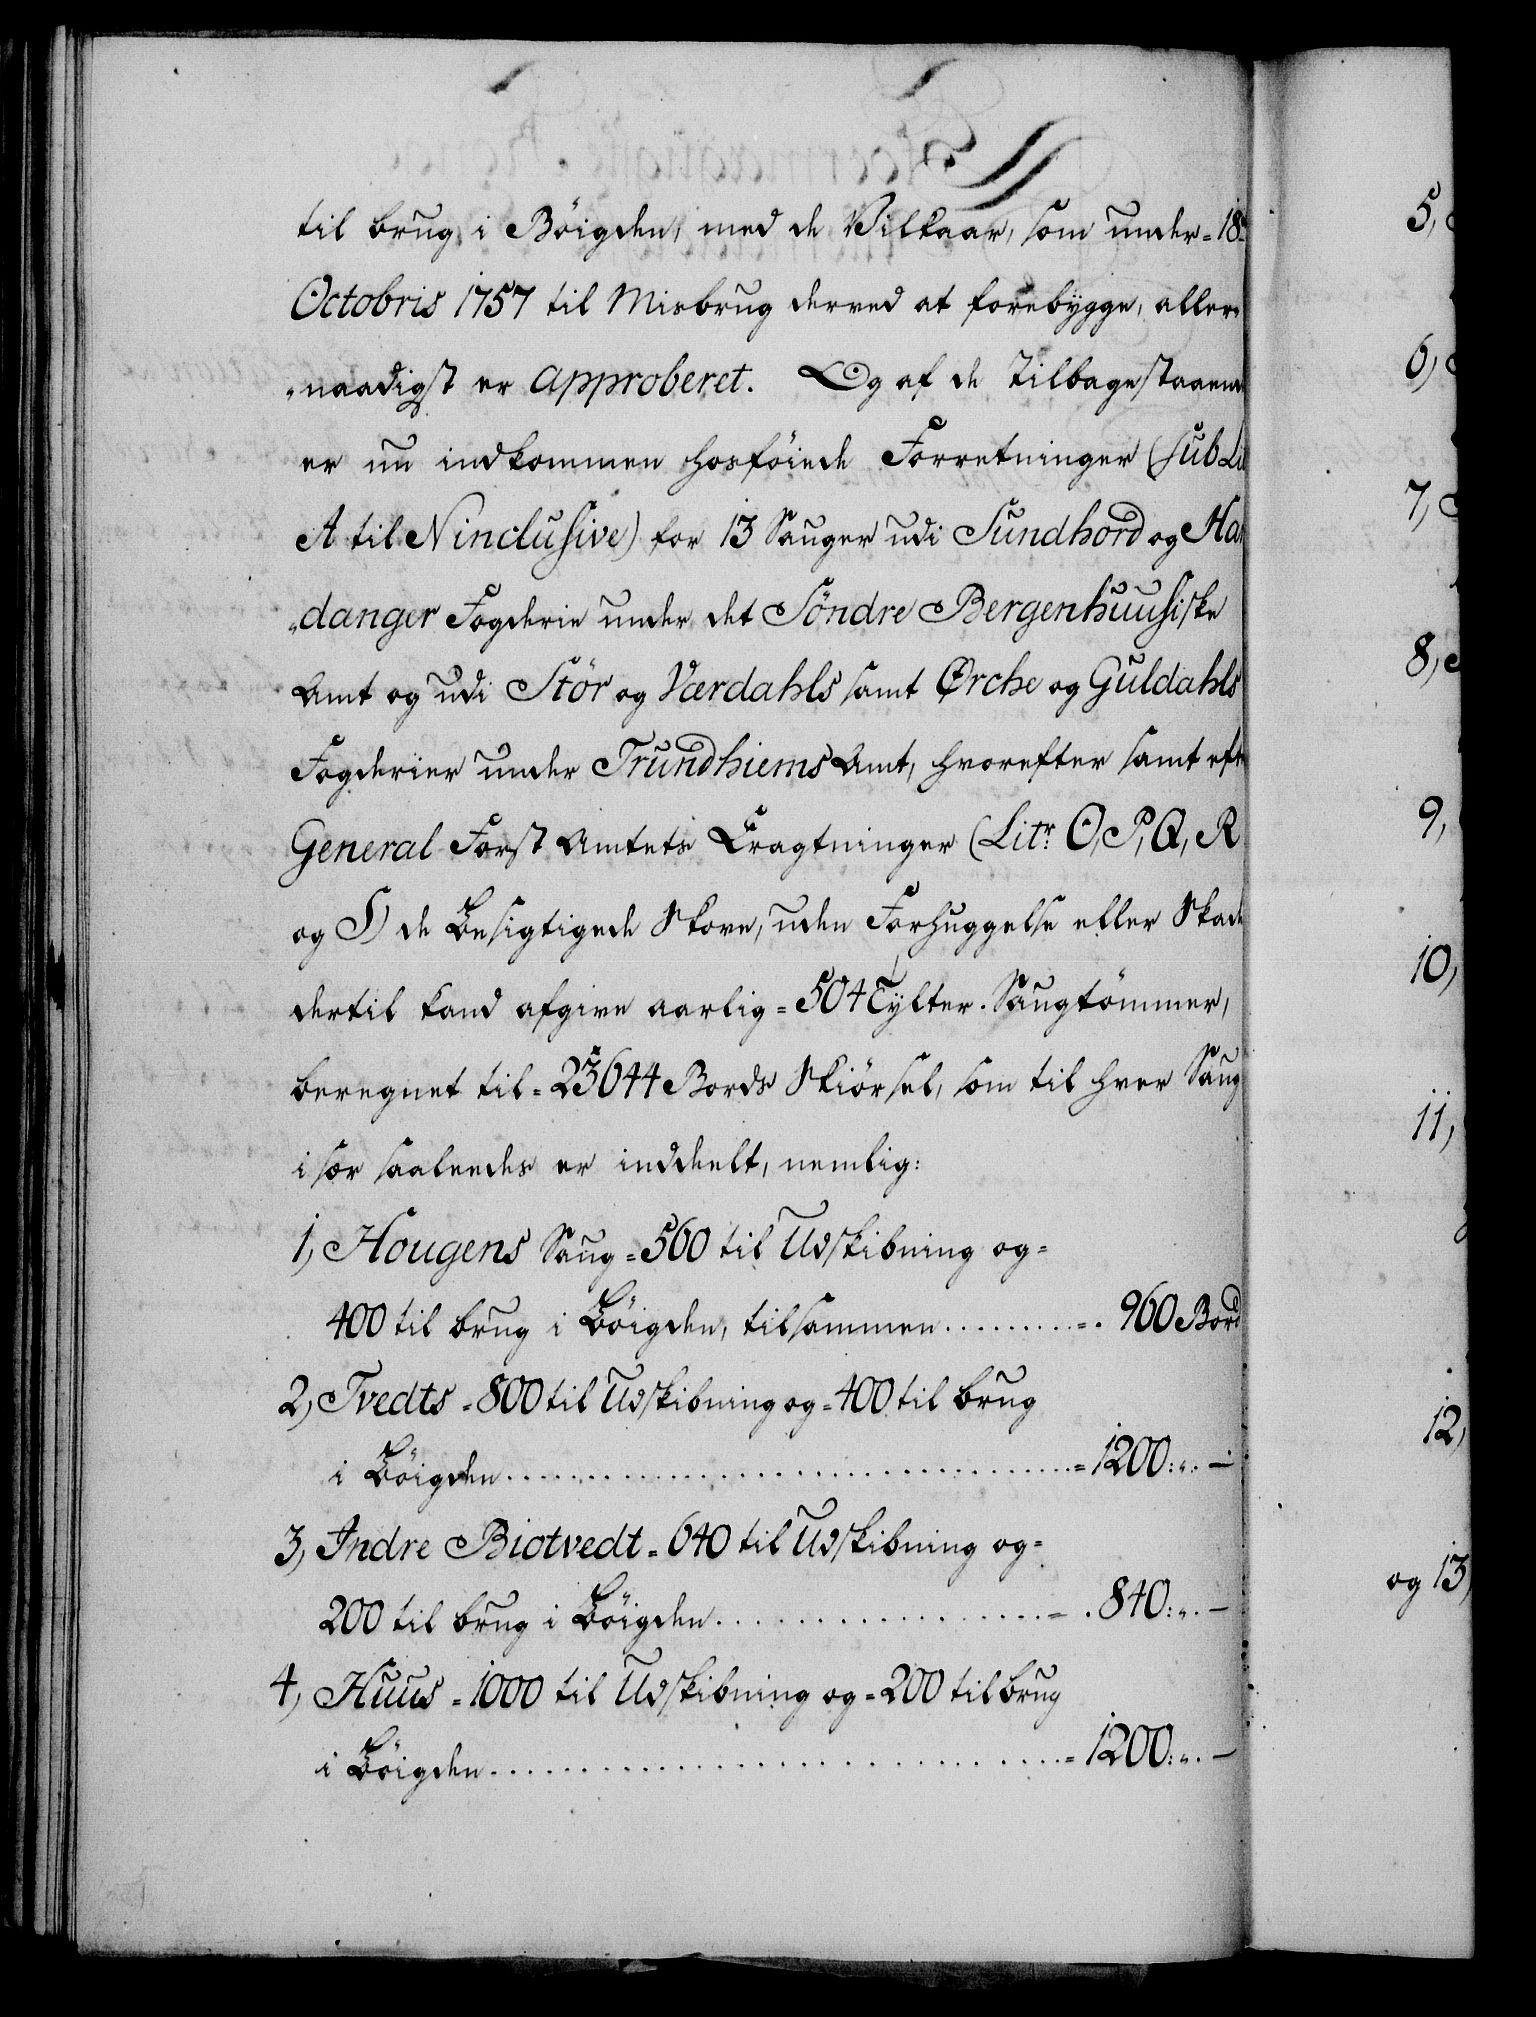 til brug i Böigden, med de Vilkaar, som under = 18de
Octobris 1757 til Misbrug derved at forebygge, aller-
naadigst er approberet. Og af de Tilbagestaaende
er nu indkommen hosföiede Forretninger (Sub Li
A til N inclusive) for 13 Sauger udi Sundhord og Har
danger Fogderie under det Söndre Bergenhuusiske
Amt og udi Stör og Værdahls samt Ørche og Guldahls
Fogderier under Trundhiems Amt, hvorefter samt efte
General Forst Amtets Eragtninger (Litr. O, P, Q, R
og S) de Besigtigede Skove, uden Forhuggelse eller Skade
dertil kand afgive aarlig = 504 Tylter Saugtömmer,
beregnet til = 23644 Bords Skiörsel, som til hver Saug
i sær saaledes er inddeelt, nemlig:
1, Hougens Saug = 560 til Udskibning og =
400 til brug i Böigden, tilsammen . . . . . . . . . = . 960 Bord
2, Tvedts = 800 til Udskibning og = 400 til brug
i Böigden . . . . . . . . . . . . . . . . . . . . = 1200 : „ . —
3, Indre Biotvedt = 640 til Udskibning og =
200 til brug i Böigden . . . . . . . . . . . . . = . 840 : „ . —
4, Huus = 1000 til Udskibning og = 200 til brug
i Böigden . . . . . . . . . . . . . . . . . . . . = 1200 : „ . —
5,
6,
7,
8,
9,
10,
11,
12,
og 13,